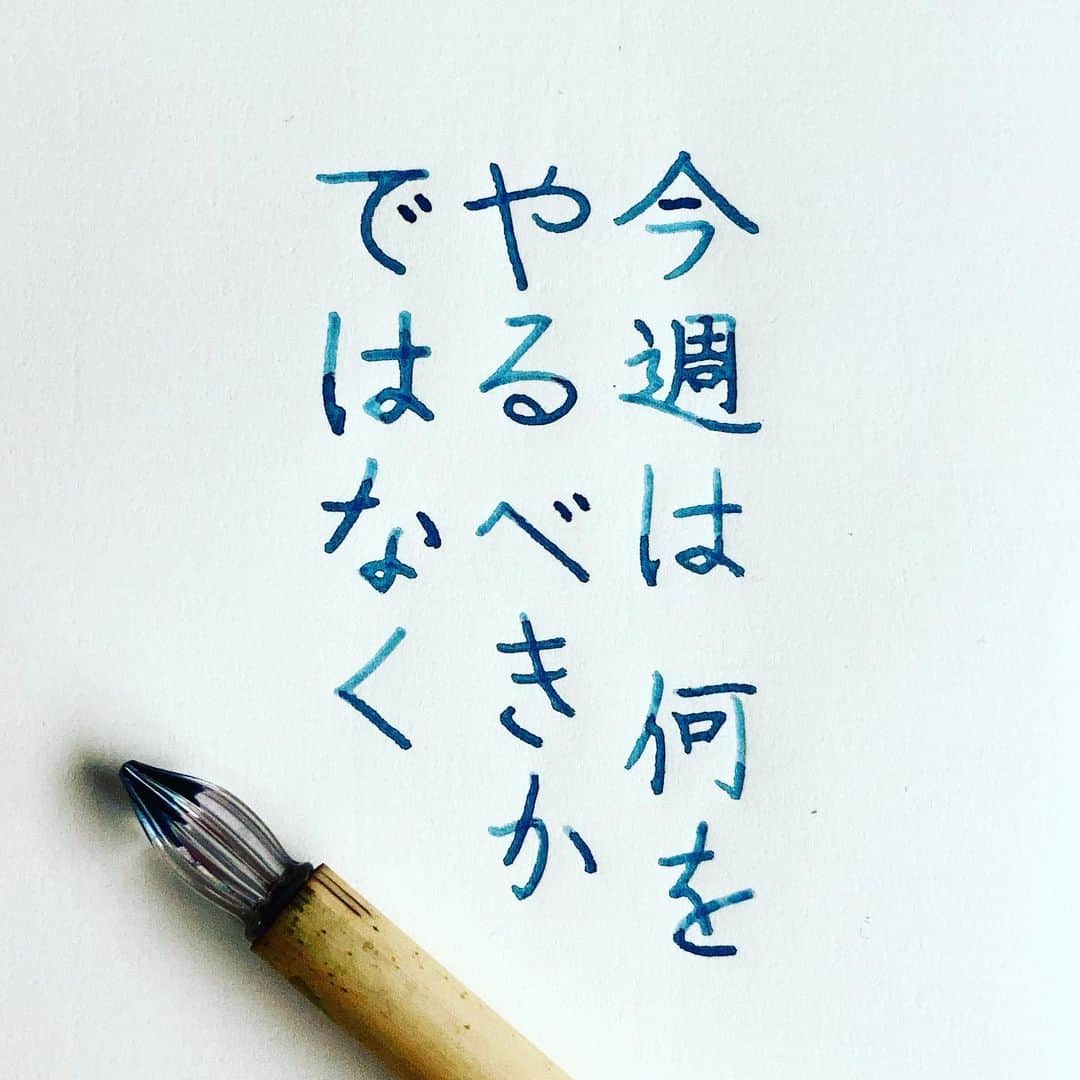 今週は 何を
やるべきか
ではなく